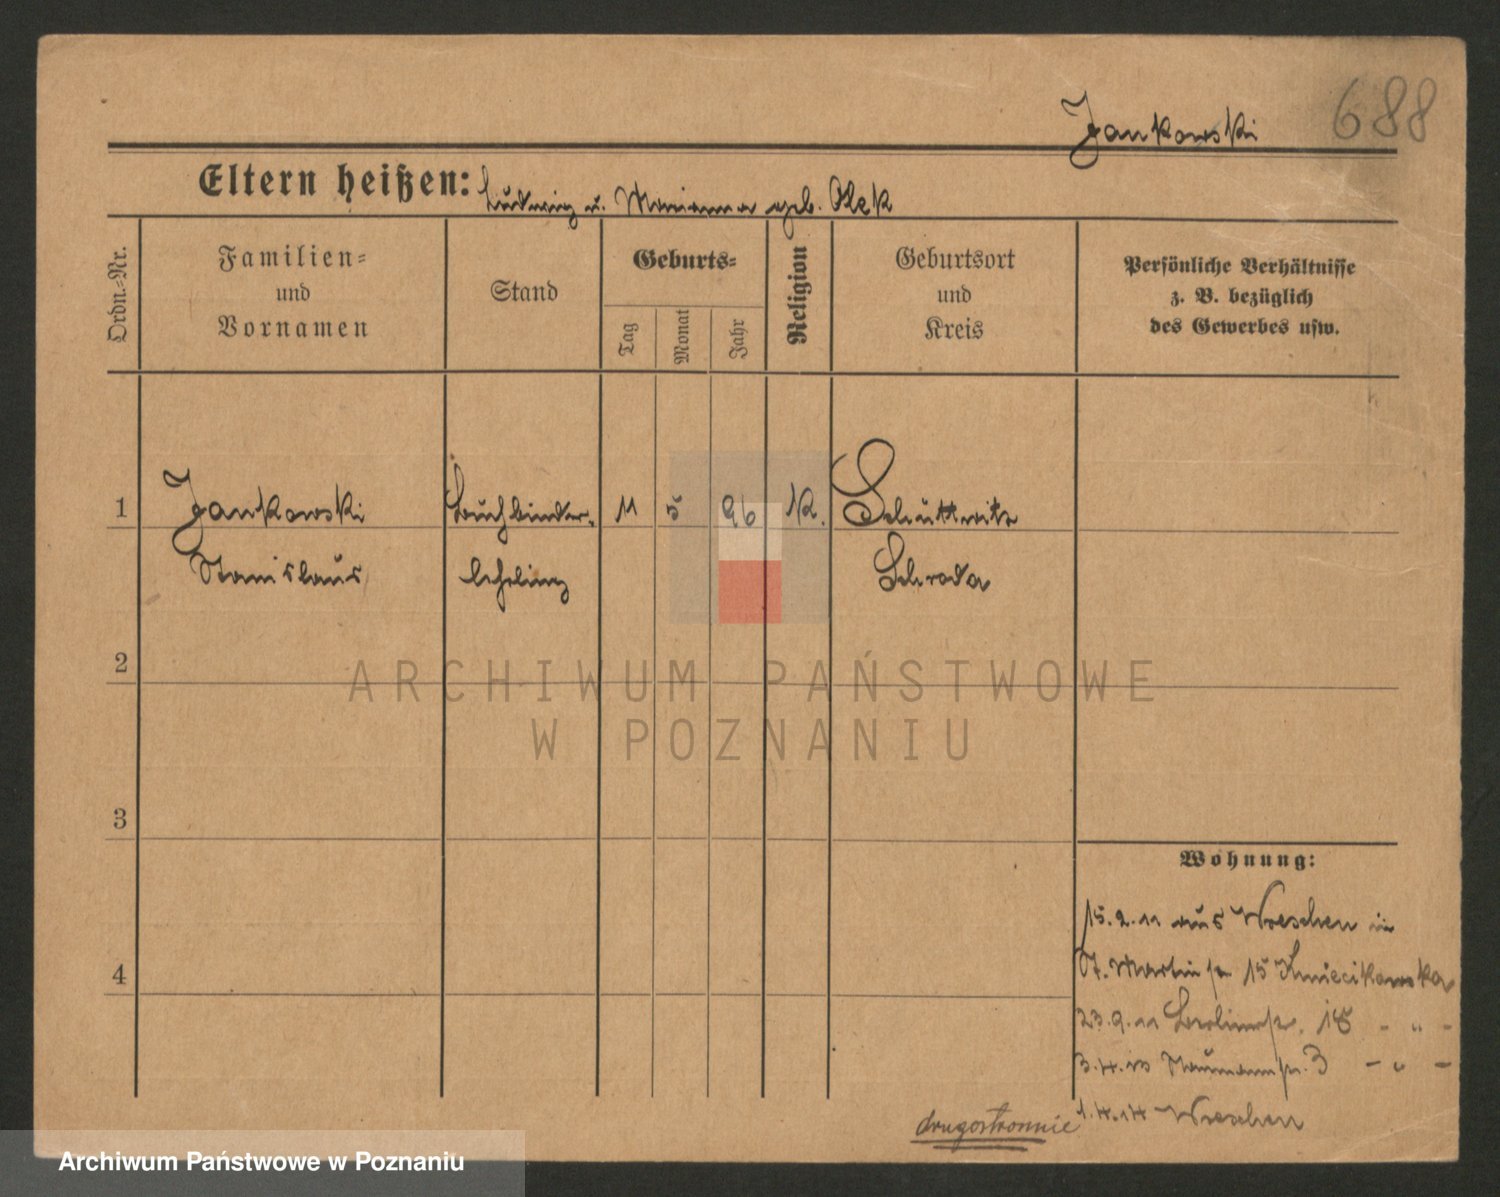 688
Jankowski
Eltern heißen: Ludwig u. Marianna geb. Olek
Ordn.-Nr.
Familien-
und
Vornamen
Stand
Geburts-
Tag
Monat
Jahr
Religion
Geburtsort
und
Kreis
Persönliche Verhältnisse
z. B. bezüglich
des Gewerbes usw.
1
Jankowski
Stanislaus
Buchbinder-
lehrling
11
5
96
K.
Schroda
2
3
4
Wohnung:
15.2.11 aus Wreschen in
St. Martinstr. 15
23.9.11 Berlinerstr. 18 - " -
Naumannstr. 3 - " -
1.4.14 Wreschen
drugostronnie
ARCHIWUM PAŃSTWOWE
W POZNANIU
Archiwum Państwowe w Poznaniu